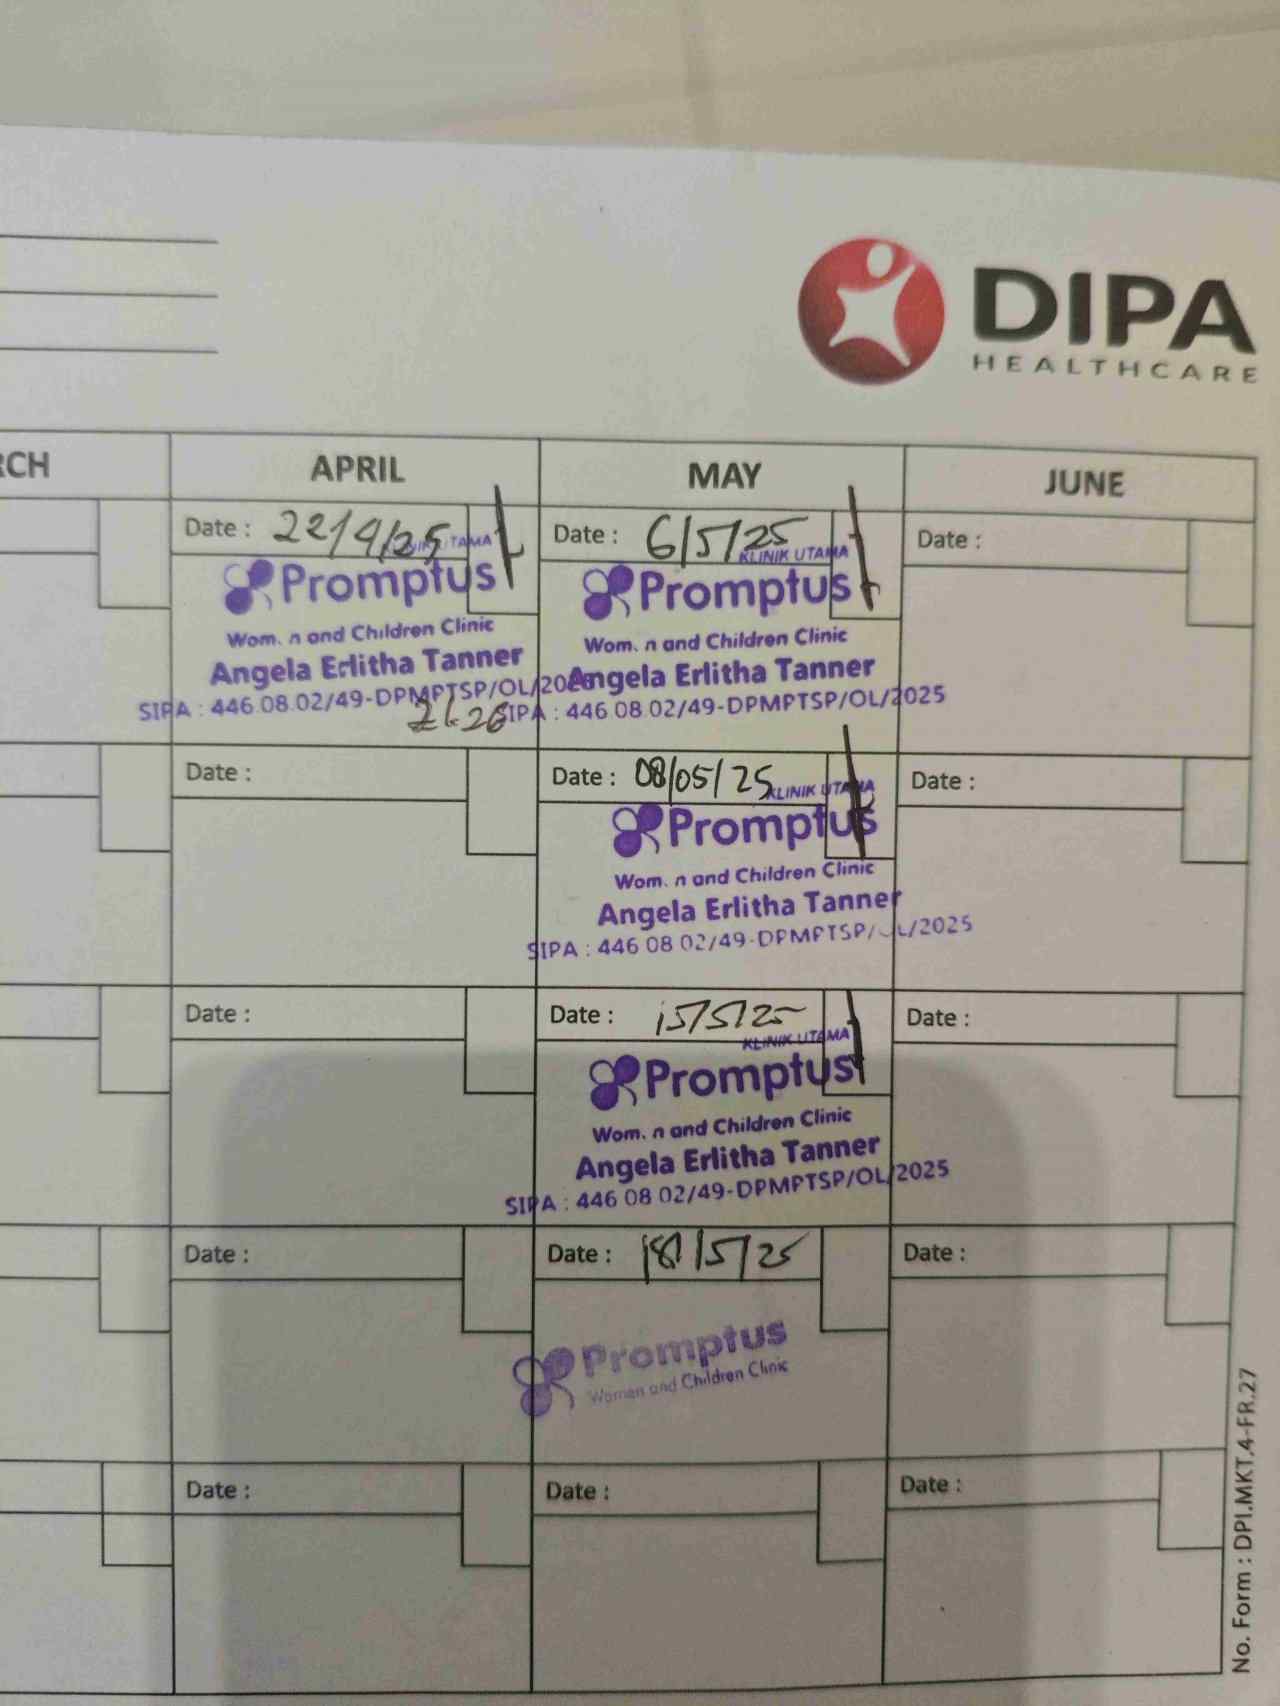 DIPA
HEALTHCARE
RCH
APRIL
MAY
JUNE
Date : 22/4/25
KLINIK UTAMA
Promptus
Wom. n and Children Clinic
Angela Erlitha Tanner
SIPA : 446.08.02/49-DPMPTSP/OL/2025
Date : 6/5/25
KLINIK UTAMA
Promptus
Wom. n and Children Clinic
Angela Erlitha Tanner
SIPA : 446.08.02/49-DPMPTSP/OL/2025
Date :
Date :
Date : 08/05/25
KLINIK UTAMA
Promptus
Wom. n and Children Clinic
Angela Erlitha Tanner
SIPA : 446 08 02/49-DPMPTSP/OL/2025
Date :
Date :
Date : 15/5/25
KLINIK UTAMA
Promptus
Wom. n and Children Clinic
Angela Erlitha Tanner
SIPA : 446 08 02/49-DPMPTSP/OL/2025
Date :
Date :
Date : 18/5/25
Promptus
Women and Children Clinic
Date :
Date :
Date :
Date :
No. Form : DPI.MKT.4-FR.27